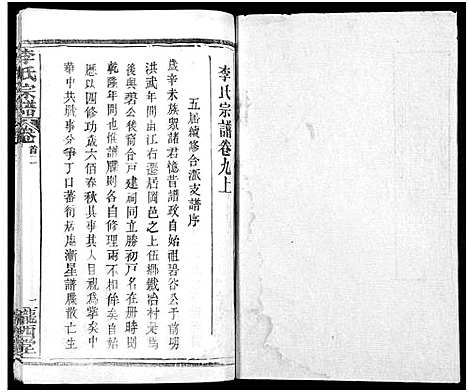 李氏宗譜卷九上
五屆續修合派支譜序
歲辛未族眾諸君憶昔譜政自始祖碧谷公于前明
洪武年間由江右遷居岡邑之上伍鄉鐵冶村為
後與碧公後裔合戶建祠同立勝初戶名在冊時則
乾隆年間也俻譜牒則各自修理兩不相侔矣自始
歷以四修功成六佰春秋其事其人目覩為摯矣中
華中共戰事分爭丁口蕃衍居處漸星譜牒散亡生
李氏宗譜 卷 首二
一
隴西堂